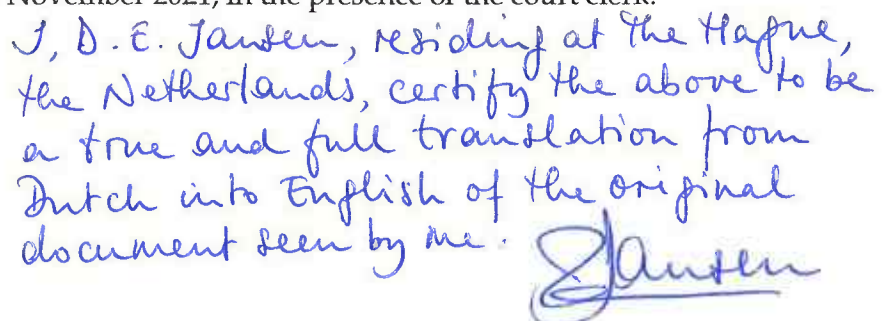 November 2021, in the presence of the court clerk.
I, D.E. Jansen, residing at The Hague,
the Netherlands, certify the above to be
a true and full translation from
Dutch into English of the original
document seen by me.
Jansen